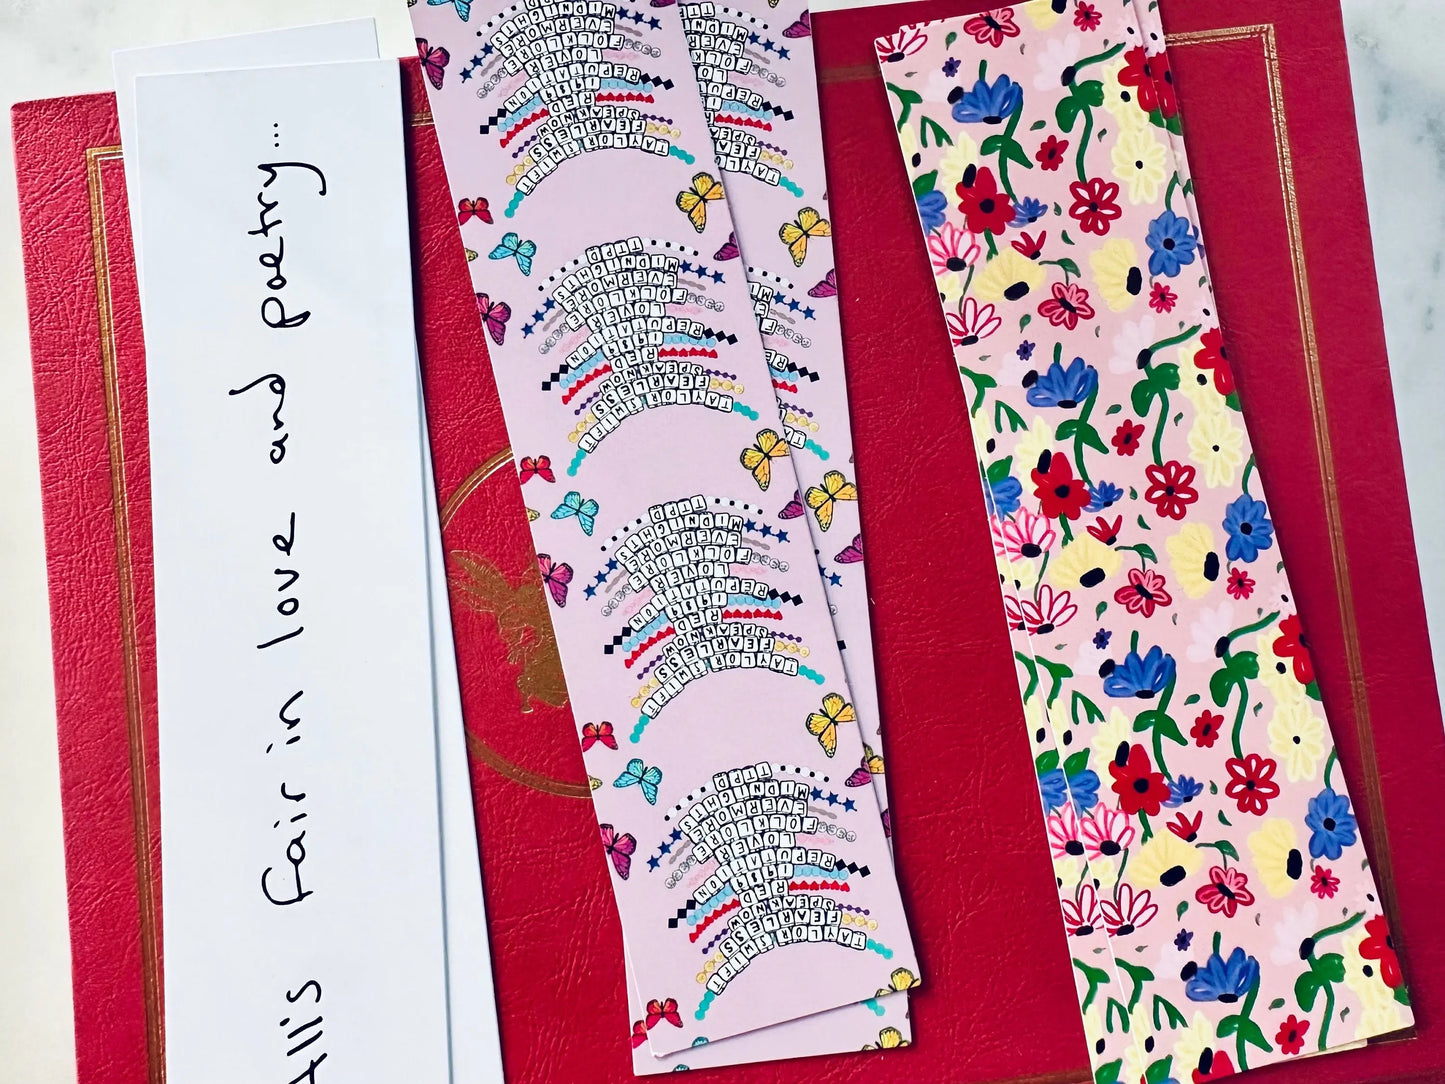 All's fair in love and poetry...
TAYLOR SWIFT
FEARLESS
SPEAKNOW
RED
1989
REPUTATION
LOVER
FOLKLORE
EVERMORE
MIDNIGHTS
TTPD
TAYLOR SWIFT
FEARLESS
SPEAKNOW
RED
1989
REPUTATION
LOVER
FOLKLORE
EVERMORE
MIDNIGHTS
TTPD
TAYLOR SWIFT
FEARLESS
SPEAKNOW
RED
1989
REPUTATION
LOVER
FOLKLORE
EVERMORE
MIDNIGHTS
TTPD
TAYLOR SWIFT
FEARLESS
SPEAKNOW
RED
1989
REPUTATION
LOVER
FOLKLORE
EVERMORE
MIDNIGHTS